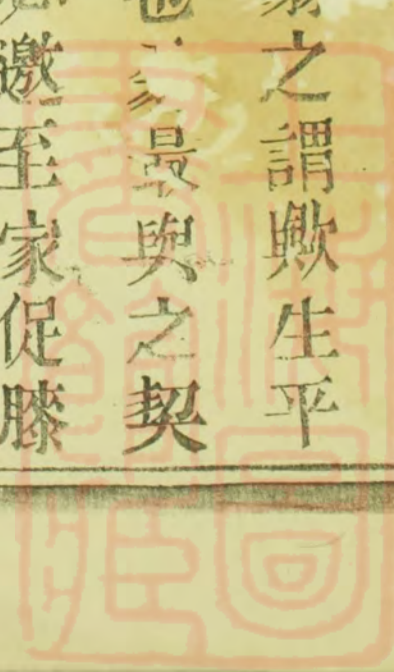 之謂歟生平
也最與之契
邀至家促膝